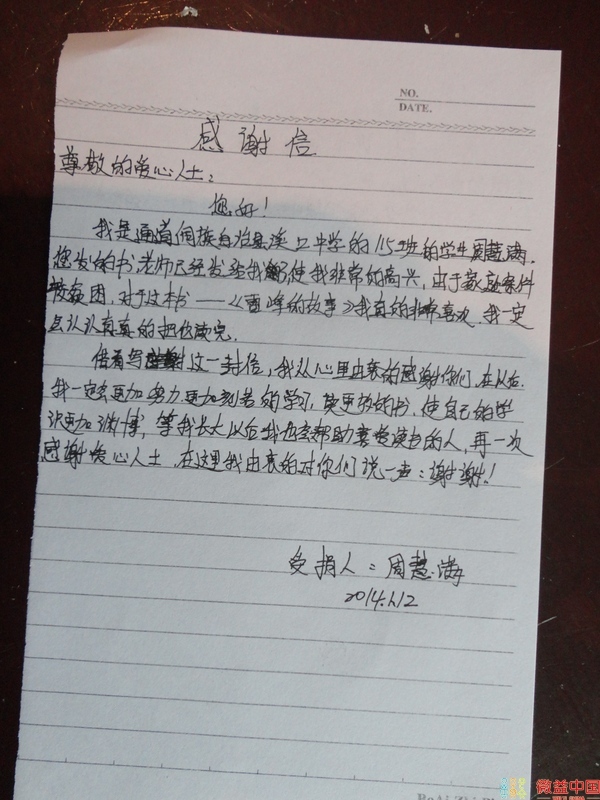 NO.
DATE.
感谢信
尊敬的爱心人士：
您好！
我是通道侗族自治县溪口中学的115班的学生周慧满，
您发的书，老师已经发给我了使我非常的高兴，由于家庭条件
较贫困，对于这本书——《雷峰的故事》我真的非常喜欢，我一定
会认认真真的把他读完。
借着写这一封信，我从心里由衷的感谢你们，在以后
我一定会更加努力更加刻苦的学习，读更多的书，使自己的学
识更加渊博，等我长大以后我也会帮助喜爱读书的人，再一次
感谢爱心人士，在这里我由衷的对你们说一声：谢谢！
受捐人：周慧满
2014.1.12
微益中国